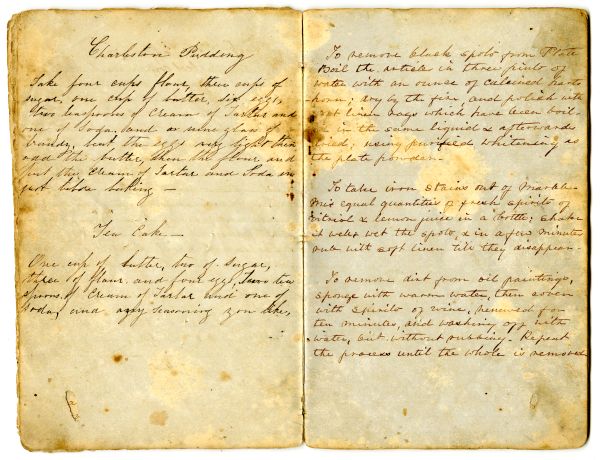 Charleston Pudding
Take four cups flour, three cups of
sugar, one cup of butter, six eggs,
two teaspoons of Cream of Tartar and
one of soda, and a wine glass of
brandy, beat the eggs very light then
add the butter, then the flour and
put the Cream of Tartar and Soda in
just before baking —
Tea Cake —
One cup of butter, two of sugar,
three of flour, and four eggs, two tea
spoons of Cream of Tartar and one of
soda, and any seasoning you like,
To remove black spots from Plate
Boil the article in three pints of
water with an ounce of calcined harts
horn; dry by the fire, and polish with
soft linen rags which have been boil-
in the same liquid & afterwards
dried; using purified whitening as
the plate powder.
To take iron stains out of Marble
Mix equal quantities of fresh spirits of
vitriol & lemon juice in a bottle, shake
it well; wet the spots, & in a few minutes
rub with soft linen till they disappear.
To remove dirt from oil paintings,
sponge with warm water, then
with spirits of wine, renewed for
ten minutes, and washing off with
water, but without rubbing. Repeat
the process until the whole is removed